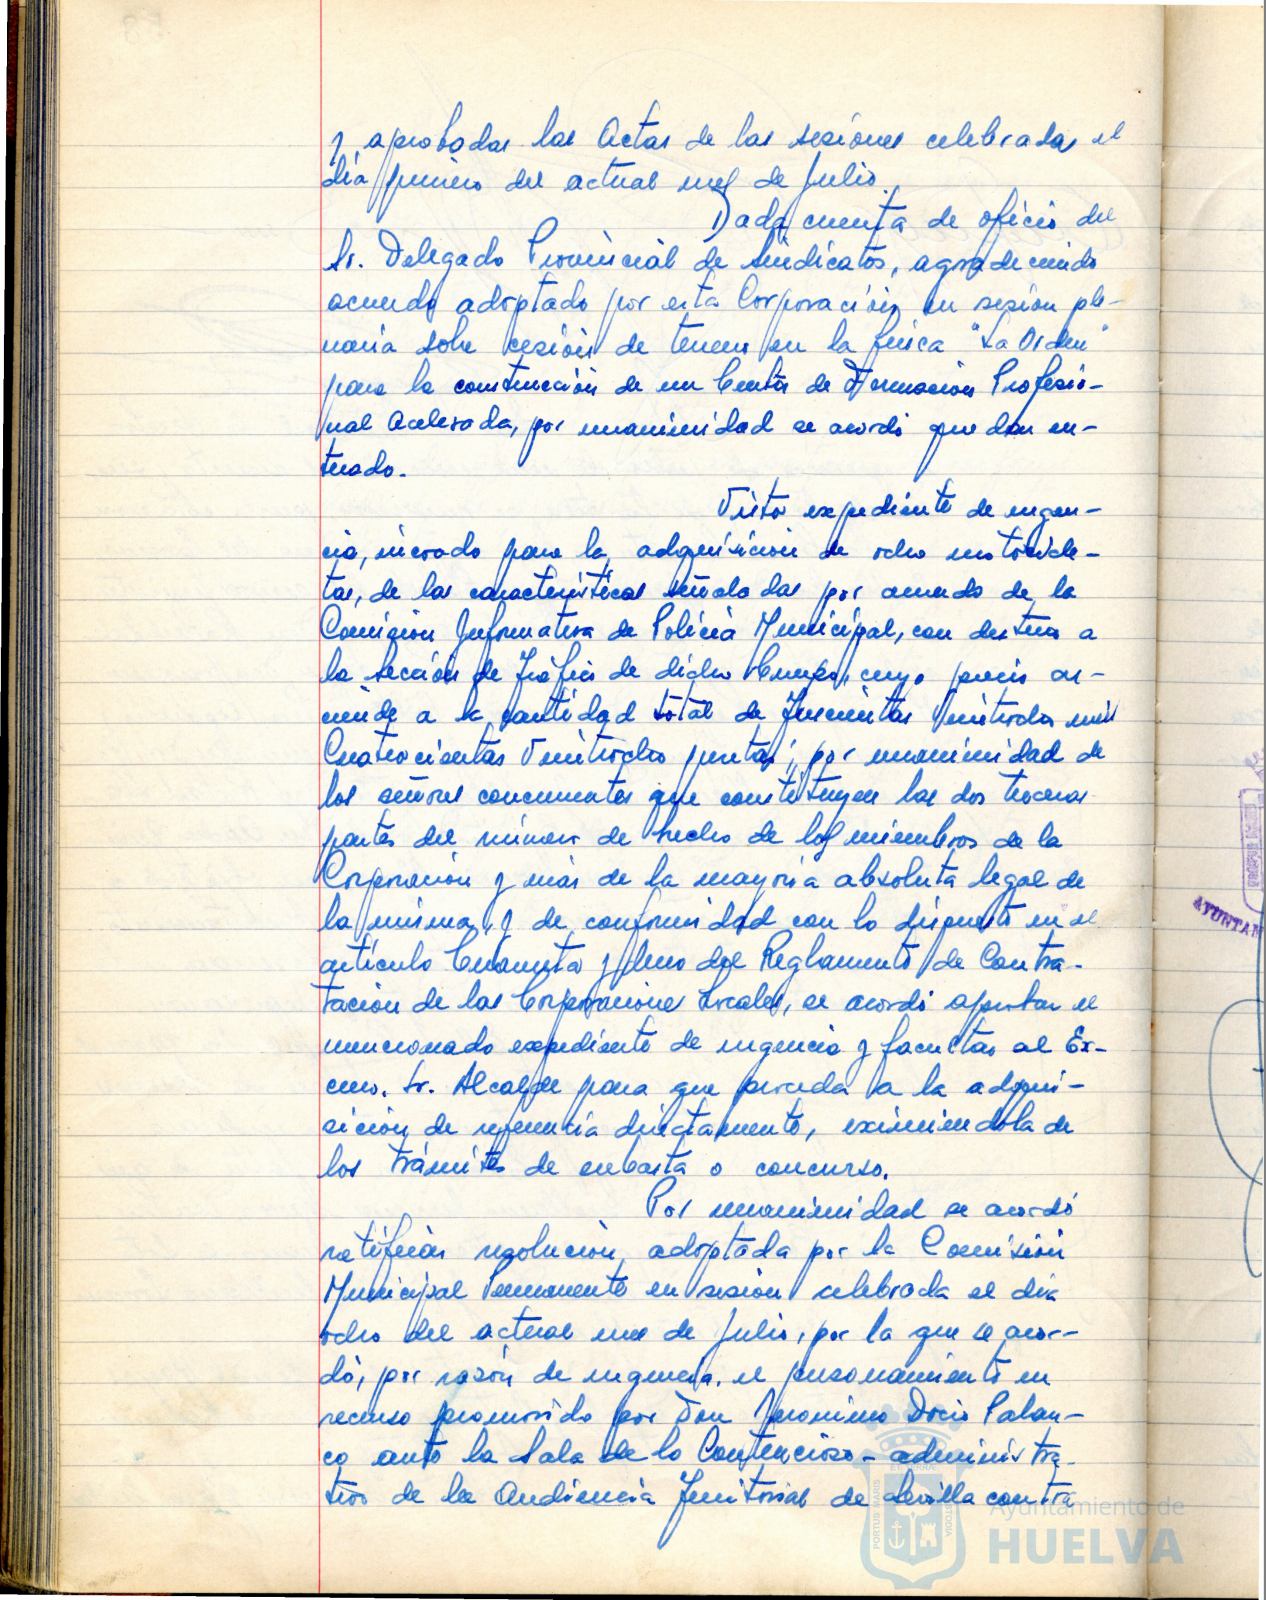 y aprobadas las Actas de las sesiones celebradas el
día primero del actual mes de Julio.
Dada cuenta de oficio del
Sr. Delegado Provincial de Sindicatos, agradeciendo
acuerdo adoptado por esta Corporación en sesión ple-
naria sobre cesión de terreno en la finca "La Orden"
para la construcción de un Centro de Formación Profesio-
nal Acelerada, por unanimidad se acordó quedar en-
terado.
Visto expediente de urgen-
cia, incoado para la adquisición de ocho motocicle-
tas, de las características señaladas por acuerdo de la
Comisión Informativa de Policía Municipal, con destino a
la Sección de Tráfico de dicho Cuerpo, cuyo precio as-
ciende a la cantidad total de Trescientas Veintiocho mil
Cuatrocientas Veintiocho pesetas; por unanimidad de
los señores concurrentes que constituyen las dos terceras
partes del número de hecho de los miembros de la
Corporación y más de la mayoría absoluta legal de
la misma, y de conformidad con lo dispuesto en el
artículo Cuarenta y uno del Reglamento de Contra-
tación de las Corporaciones Locales, se acordó aprobar el
mencionado expediente de urgencia y facultar al Ex-
cmo. Sr. Alcalde para que proceda a la adqui-
sición de referencia directamente, eximiéndola de
los trámites de subasta o concurso.
Por unanimidad se acordó
ratificar resolución adoptada por la Comisión
Municipal Permanente en sesión celebrada el día
ocho del actual mes de Julio, por la que se acor-
dó, por razón de urgencia, el personamiento en
recurso promovido por Don Jeronimo Docio Palan-
co ante la Sala de lo Contencioso-administra-
tivo de la Audiencia Territorial de Sevilla contra
Ayuntamiento de
HUELVA
PORTUS MARIS
CUSTODIA
AYUNTAM